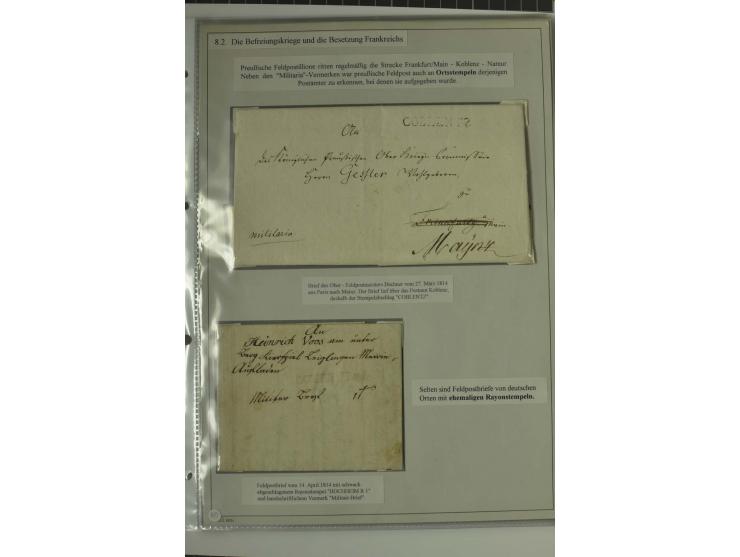 8.2. Die Befreiungskriege und die Besetzung Frankreichs
Preußische Feldpostillione ritten regelmäßig die Strecke Frankfurt/Main - Koblenz - Namur
Neben den "Militaria"-Vermerken war preußische Feldpost auch an Ortsstempeln derjenigen
Postämter zu erkennen, bei denen sie aufgegeben wurde.
An COBLENTZ
Ober Kriegs Commissair
Herrn Gessler Wohlgeboren
zu
militaria
Maynz
Brief des Ober - Feldpostmeisters Dachner vom 27. März 1814
aus Paris nach Mainz. Der Brief lief über das Postamt Koblenz,
deshalb der Stempelabschlag "COBLENTZ"
An
Heinrich Voos am unter
Berg
Militar Brof
Selten sind Feldpostbriefe von deutschen
Orten mit ehemaligen Rayonstempeln.
Feldpostbrief vom 14. April 1814 mit schwach
abgeschlagenem Rayonstempel "HOCHHEIM R 1"
und handschriftlichem Vermerk "Militair-Brief".